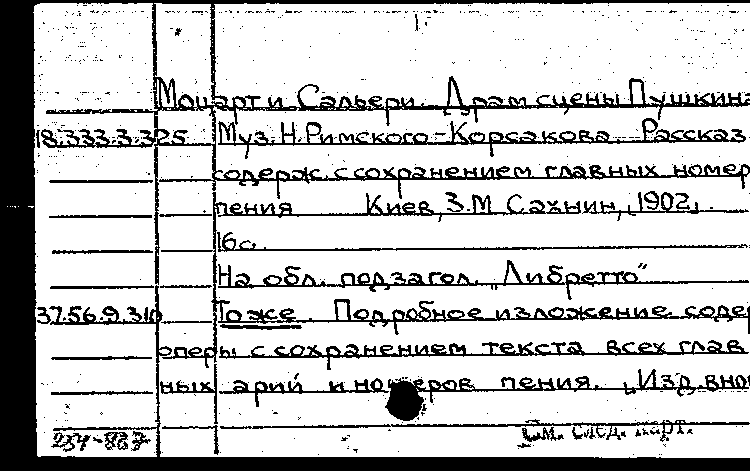 Моцарт и Сальери. Драм сцены Пушкина
18.333.3.325 Муз. Н. Римского-Корсакова. Рассказ
содерж. с сохранением главных номер
пения Киев, З.М Сахнин, [1902].
16с.
На обл. подзагол. „Либретто“
37.56.9.310 То же. Подробное изложение содер
оперы с сохранением текста всех глав
ных арий и номеров пения. [Изд. вно
См. след. карт.